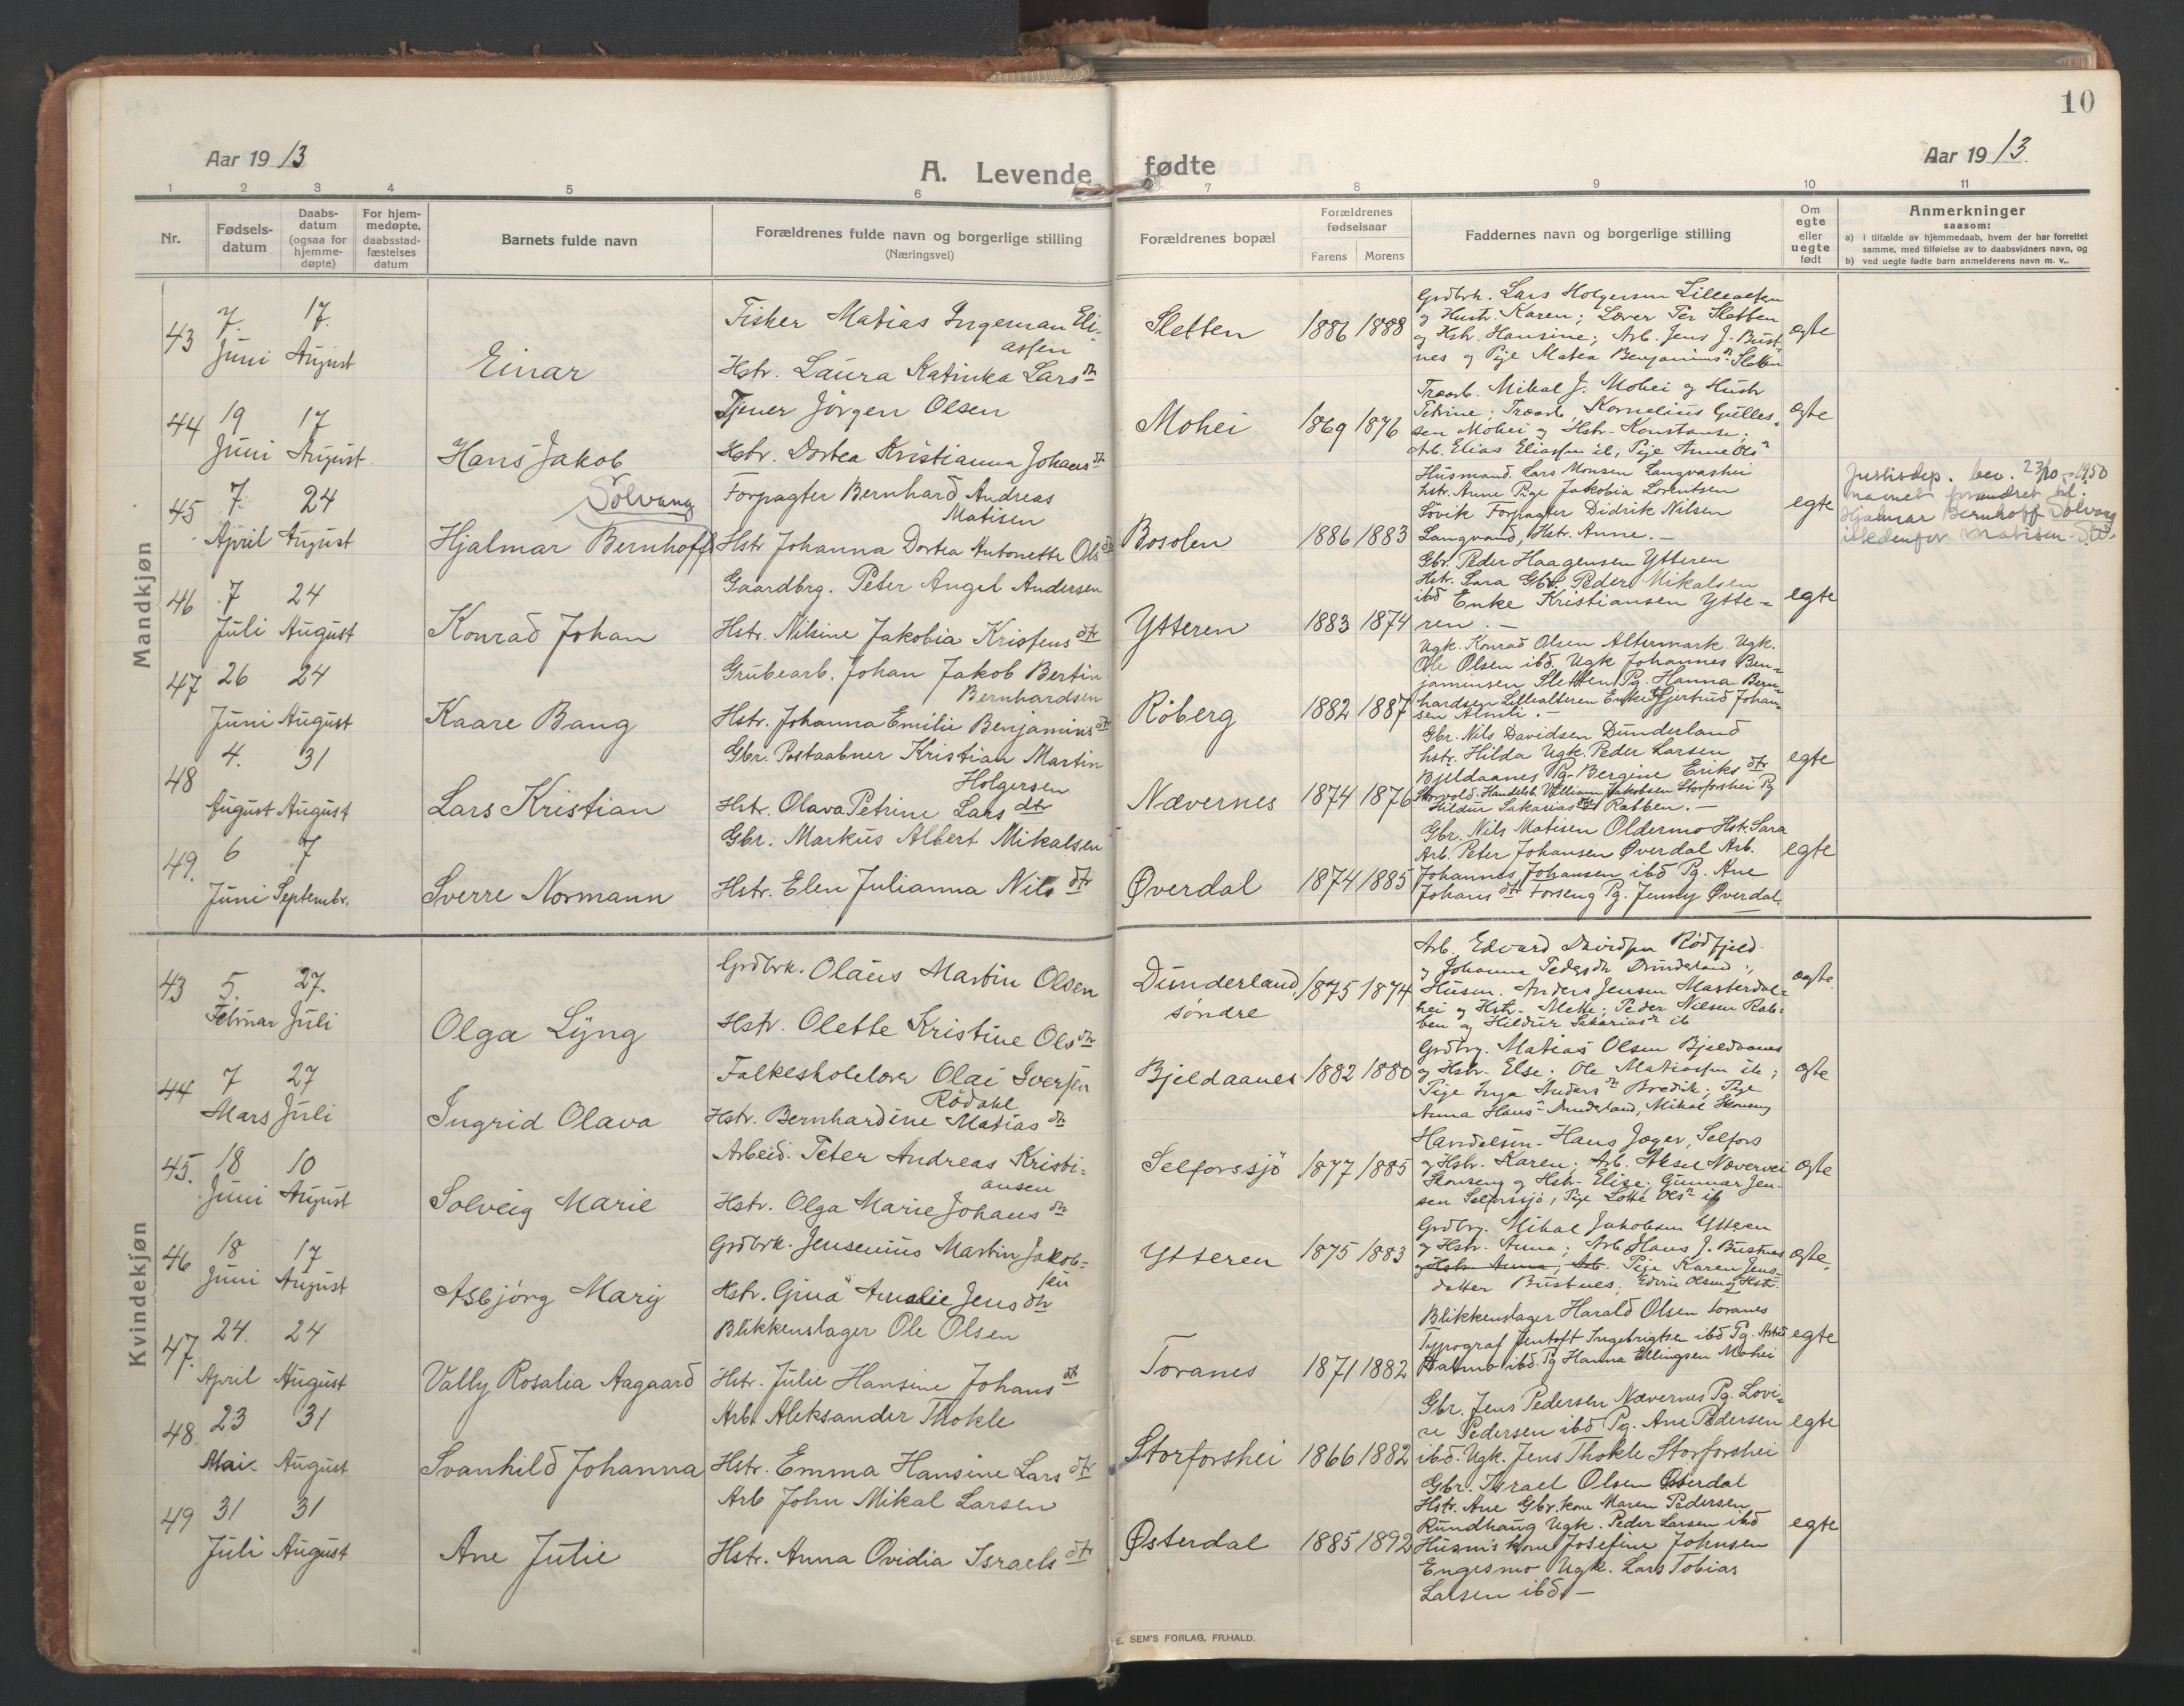 10
Aar 1913
A. Levende fødte
Aar 1913.
1 2 3 4 5 6 7 8 9 10 11
Nr.
Fødsels-
datum
Daabs-
datum
(ogsaa for
hjemme-
døpte)
For hjem-
medøpte,
daabsstad-
fæstelses
datum
Barnets fulde navn
Forældrenes fulde navn og borgerlige stilling
(Næringsvei)
Forældrenes bopæl
Forældrenes
fødselsaar
Farens Morens
Faddernes navn og borgerlige stilling
Om
egte
eller
uegte
født
Anmerkninger
saasom:
a) i tilfælde av hjemmedaab, hvem der har forrettet
samme, med tilføielse av to daabsvidners navn, og
b) ved uegte fødte barn anmelderens navn m. v..
Mandkjøn
43
7. Juni
17. August
Einar
Fisker Matias Ingeman Eli-
assen
Hstr. Laura Katinka Larsdtr
Sletten
1886 1888
Grdbrk. Lars Holgersen Lillealteren
og Hustr. Karen; Lærer Per Sletten
og Hstr. Hansine; Arb. Jens J. Bust-
nes og Pije Matea Benjaminsdtr Sletten
egte
44
19 Juni
17 August.
Hans Jakob
Tjener Jörgen Olsen
Hstr. Dortea Kristianna Johansdtr
Mohei
1869 1876
Træarb. Mikal J. Mohei og Hustr
Petrine; Træarb. Kornelius Gulles-
sen Mohei og Hstr. Konstanse;
Arb. Elias Eliassen ib, Pije Anne Olsdtr
egte
45
7. April
24 August
Solvang
Hjalmar Bernhoff
Forpagter Bernhard Andreas
Matisen
Hstr Johanna Dortea Antonette Olsdtr
Bosolen
1886 1883
Husmand. Lars Monsen Langvashei
hstr. Anne Pige Jakobia Lorentsen
Sövik Forpagter Didrik Nilsen
Langvand, Hstr. Anne. —
egte
Justisdep. bev. 23/10-1950
navnet forandret til
Hjalmar Bernhoff Solvang
istedenfor Matisen.
46
7 Juli
24 August
Konrad Johan
Gaardbrg. Peter Angel Andersen
Hstr. Nilsine Jakobia Kristensdtr
Ytteren
1883 1874
Gbr. Peder Haagensen Ytteren
Hstr. Sara Gbr. Peder Mikalsen
ibd Enke Kristiansen Ytte-
ren. —
egte
47
26 Juni
24 August
Kaare Bang
Grubearb. Johan Jakob Bertin
Bernhardsen
Hstr. Johanna Emilie Benjaminsdtr
Röberg
1882 1887
Ugk. Konrad Olsen Altermark Ugk.
Ole Olsen ibd. Ugk Johannes Ben-
jaminsen Sletten Pg. Hanna Bern-
hardsen Lillealteren Enke Gjertrud Johan-
sen
48
4. August
31 August
Lars Kristian
Gbr. Postaabner Kristian Martin
Holgersen
Hstr. Olava Petrine Larsdtr
Nævernes
1874 1876
Gbr. Nils Davidsen Dunderland
hstr. Hilda Ugk. Peder Larsen
Bjeldaanes Pg. Bergine Eriksdtr
Storvold. Handelsb. Villiam Jakobsen Storforshei Pg
Hildur Sakariasdtr Rabben. —
egte
49.
6 Juni
7 Septembr.
Sverre Normann
Gbr. Markus Albert Mikalsen
Hstr. Elen Julianna Nilsdtr
Øverdal
1874 1885
Gbr. Nils Matisen Oldermo Hstr. Sara
Arb. Peter Johansen Øverdal Arb.
Johannes Johansen ibd Pg. Ane
Johansdtr Forseng Pg. Jenny Øverdal.
egte
Kvindekjøn
43
5. Februar
27. Juli
Olga Lyng
Grdbrk. Olaus Martin Olsen
Hstr. Olette Kristine Olsdtr
Dunderland,
söndre
1875 1874
Arb. Edvard Davidsen Rödfjeld
og Johanna Pedersdtr Dunderland;
Husm. Anders Jensen Masterdal-
hei og Hstr. Mette; Peder Nilsen Rab-
ben og Hildur Sakariasdtr ib
egte
44
7 Mars
27 Juli
Ingrid Olava
Folkeskolelærer Olai Iversen
Rödahl
Hstr. Bernhardine Matiasdtr
Bjeldaanes
1882 1880
Grdbrg. Matias Olsen Bjeldaanes
og Hstr. Else; Ole Matiassen ib;
Pije Inga Andersdtr Bredik; Pije
Anna Hansdtr Dunderland, Mikal Skonseng
egte
45.
18 Juni
10 August
Solveig Marie
Arbeid. Peter Andreas Kristi-
ansen
Hstr. Olga Marie Johansdtr
Selforssjö
1877 1885
Handelsm. Hans Jæger, Selfors
og Hstr. Karen; Arb. Aksel Nævervei
Skonseng og Hstr. Elise; Gunnar Jen-
sen Selforssjö, Pije Lotte Olsdtr ib
egte
46
18 Juni
17 August
Asbjörg Mary
Grdbrk. Jensenius Martin Jakob-
sen
Hstr. Gina Amalie Jensdtr
Ytteren
1875 1883
Grdbrg. Mikal Jakobsen Ytteren
og Hstr. Anna; Arb. Hans J. Bustnes
og Hstr. Anna; Arb. Pije Karen Jens-
datter Bustnes; Edvin Olsen og Hstr.
egte.
47.
24. April
24 August
Vally Rosalia Aagaard
Blikkenslager Ole Olsen
Hstr. Julie Hansine Johansdtr
Toranes
1871 1882
Blikkenslager Harald Olsen toranes
Typograf Jentoft Ingebrigtsen ibd Pg. Astrid
ibd. Pg Hanna Ellingsen Mohei
egte
48.
23 Mai
31 August
Svanhild Johanna
Arb. Aleksander Thokle
Hstr. Emma Hansine Larsdtr
Storforshei
1866 1882
Gbr. Jens Pedersen Nævernes Pg. Lovi-
se Pedersen ibd Pg. Ane Pedersen
ibd. Ugk. Jens Thokle Storforshei
egte
49
31 Juli
31 August
Ane Julie
Arb John Mikal Larsen
Hstr. Anna Ovidia Israelsdtr
Østerdal
1885 1892
Gbr. Israel Olsen Østerdal
Hstr. Ane Gbr. kone Maren Pedersen
Rundhaug Ugk. Peder Larsen ibd
Husm's kone Josefine Johnsen
Engesmo Ugk. Lars Tobias
Larsen ibd. —
egte
E. SEM'S FORLAG, FR.HALD.